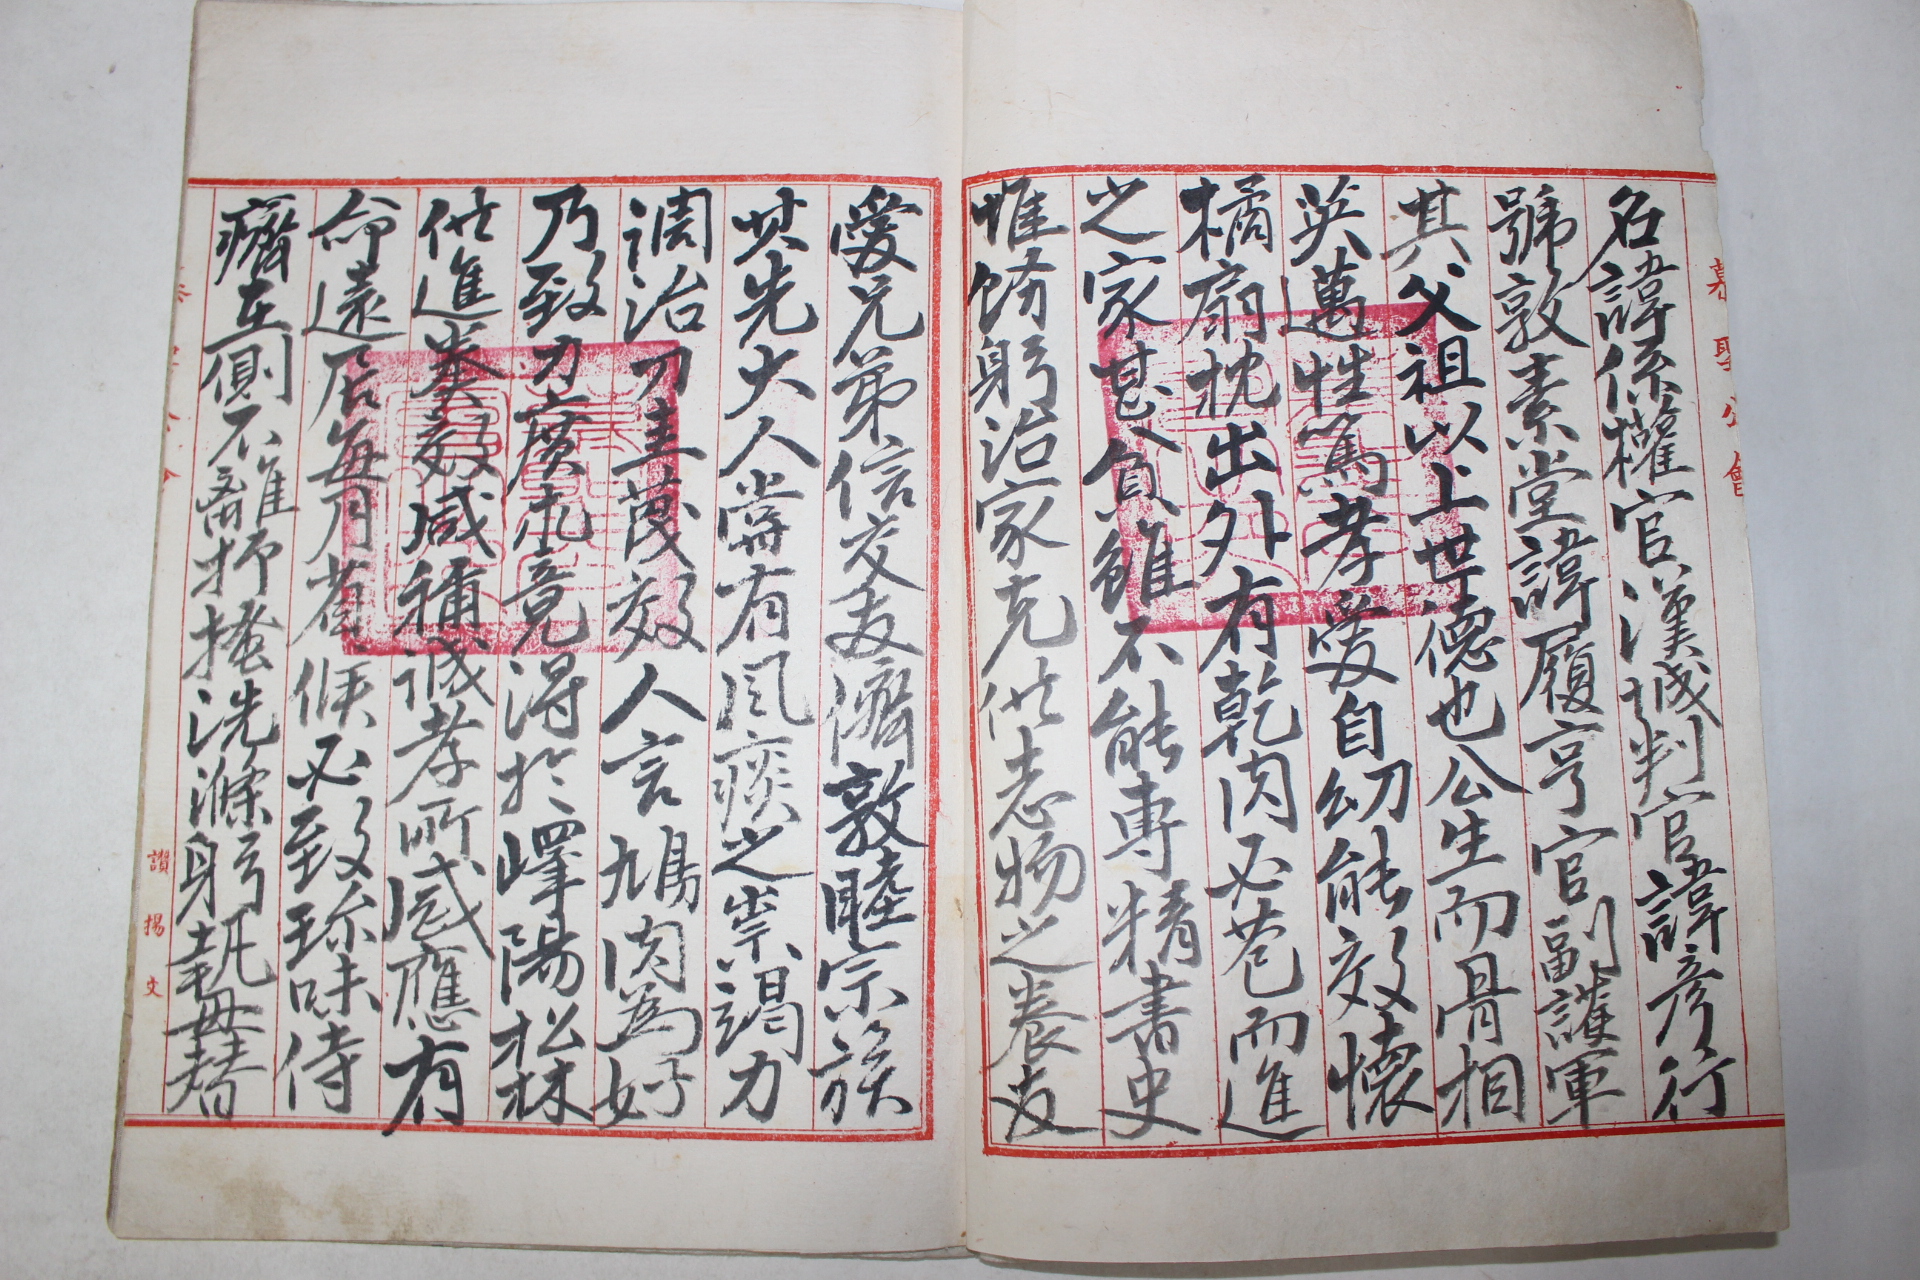 名諱係權官漢城判官諱彦行
號敦素堂諱履亨官副護軍
其父祖以上世德也公生而骨相
英邁性篤孝愛自幼能效懷
橘扇枕出外有乾肉必苞而進
之家甚貧雖不能專精書史
惟飭躬治家克供志物之養友
愛兄弟信交友儕敦睦宗族
其先大人嘗有風痰之祟竭力
調治刀圭蔑效人言鳩肉為好
乃致力廣求竟得於嶧陽松林
供進奏效咸稱誠孝所感應有
命遠居每月省候必致珍味侍
癠在側不離抑搔洗滌躬執無替
慕聖公會
讚揚文